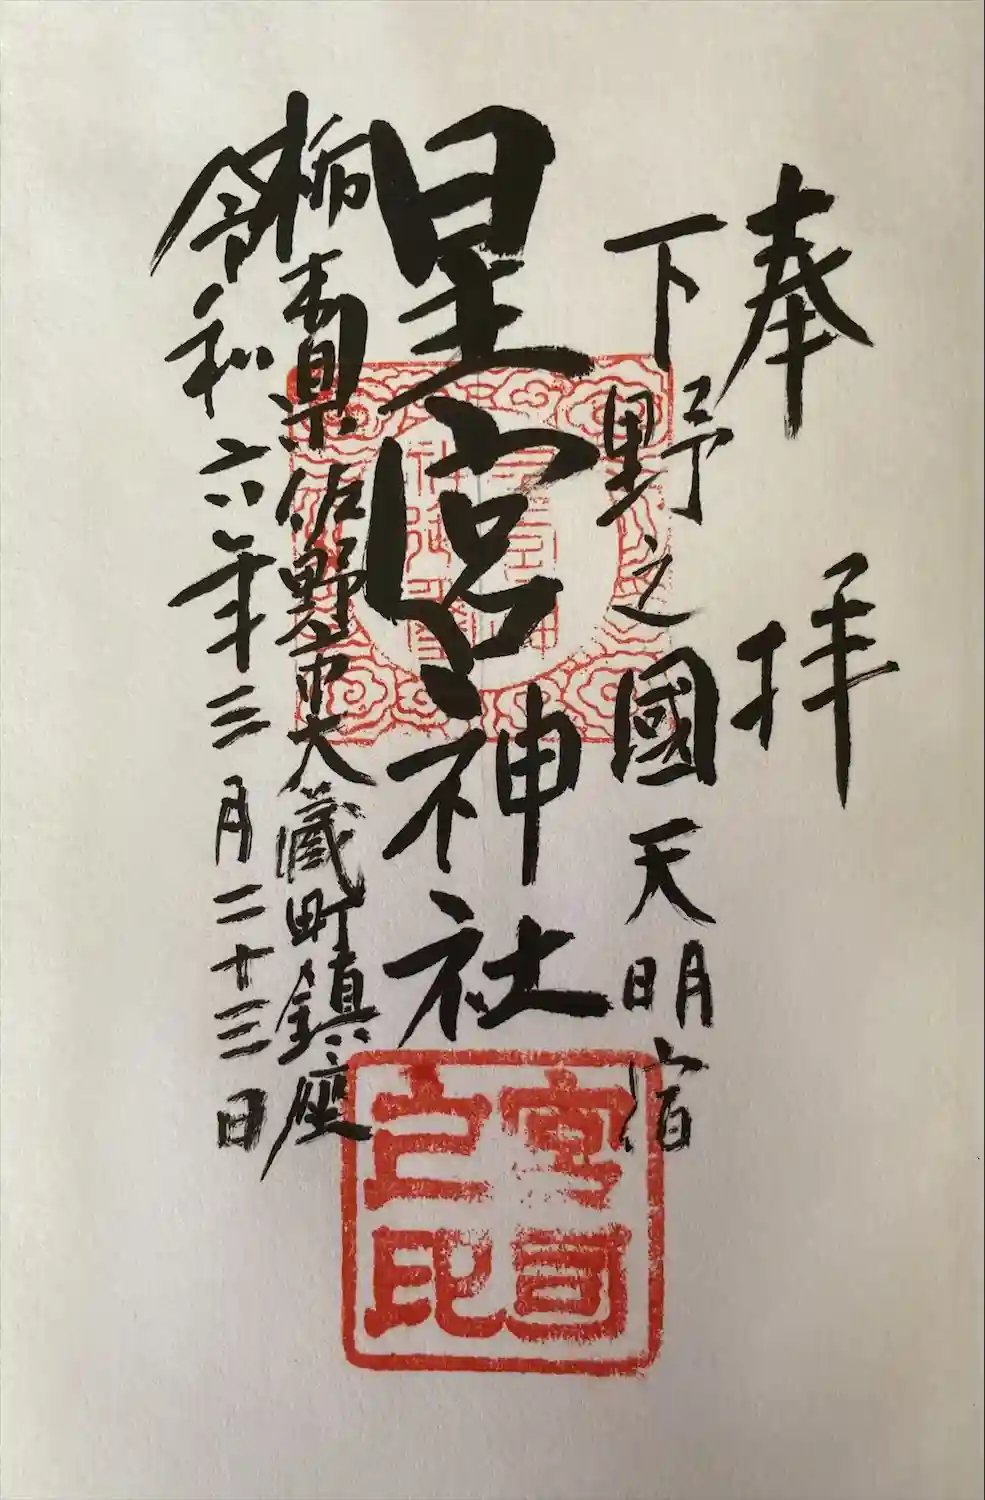 奉拝
下野之國天明宿
星宮神社
栃木県佐野市大蔵町鎮座
令和六年三月二十三日
宮司
之印